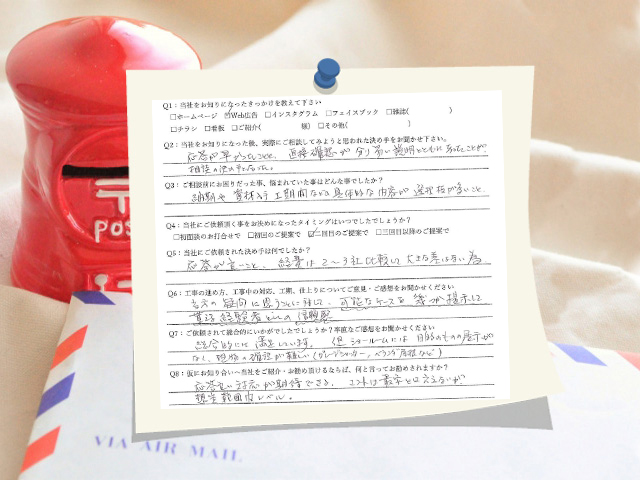 Q1：当社をお知りになったきっかけを教えて下さい
□ホームページ ☑Web広告 □インスタグラム □フェイスブック □雑誌( )
□チラシ □看板 □ご紹介( 様) □その他( )
Q2：当社をお知りになった後、実際にご相談してみようと思われた決め手をお聞かせ下さい。
応答が早かったこと、直接確認が分り易い説明とともにあったことが
相談の決め手となった。
Q3：ご相談前にお困りだった事、悩まれていた事はどんな事でしたか？
納期や 工期間など具体的な内容が選択肢が多いこと
Q4：当社にご依頼頂く事をお決めになったタイミングはいつでしたでしょうか？
□初面談のお打合せで □初回のご提案で ☑二回目のご提案で □三回目以降のご提案で
Q5：当社にご依頼された決め手は何でしたか？
応答が良いこと、経費は2〜3社比較して大きな差はない為
Q6：工事の進め方、工事中の対応、工期、仕上りについてご意見・ご感想をお聞かせください
当方の疑問に思うことに対して、可能なケースを幾つか提示して
貰える経験者としての信頼感
Q7：ご依頼されて総合的にいかがでしたでしょうか？率直なご感想をお聞かせください
総合的には満足しています。但ショールームには目的のものの展示が
なし、現物の確認が難しい(ガレージシャッター、ベランダ屋根など)
Q8：仮にお知り合いへ当社をご紹介・お勧め頂けるならば、何と言ってお勧めされますか？
応答良い対応が期待できる。コストは最安とは云えないが
想定範囲内レベル。
POS
VIA AIR MAIL